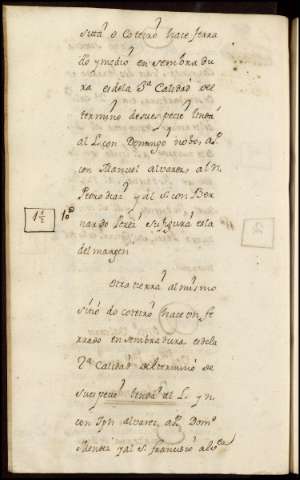 sittá ô Coteirò hace ferra
dò y mediò en sembradu
ra es de la 3ª Calidad del
termino de su especiê linda
al L. con Domingò nobos, a P.
con Manuel alvarez, al N.
Pedro diaz y al S. con Ber
nardo Perez su figura es la
del margen
1 1/2
Otra tierra al mismo
sitiò do coteirò hace un fe
rrado en sembradura es de la
2ª Calidad del terminò de
su especiê linda al L. y N.
con alvarez, a P. Domº
Mendez y al S. francisco